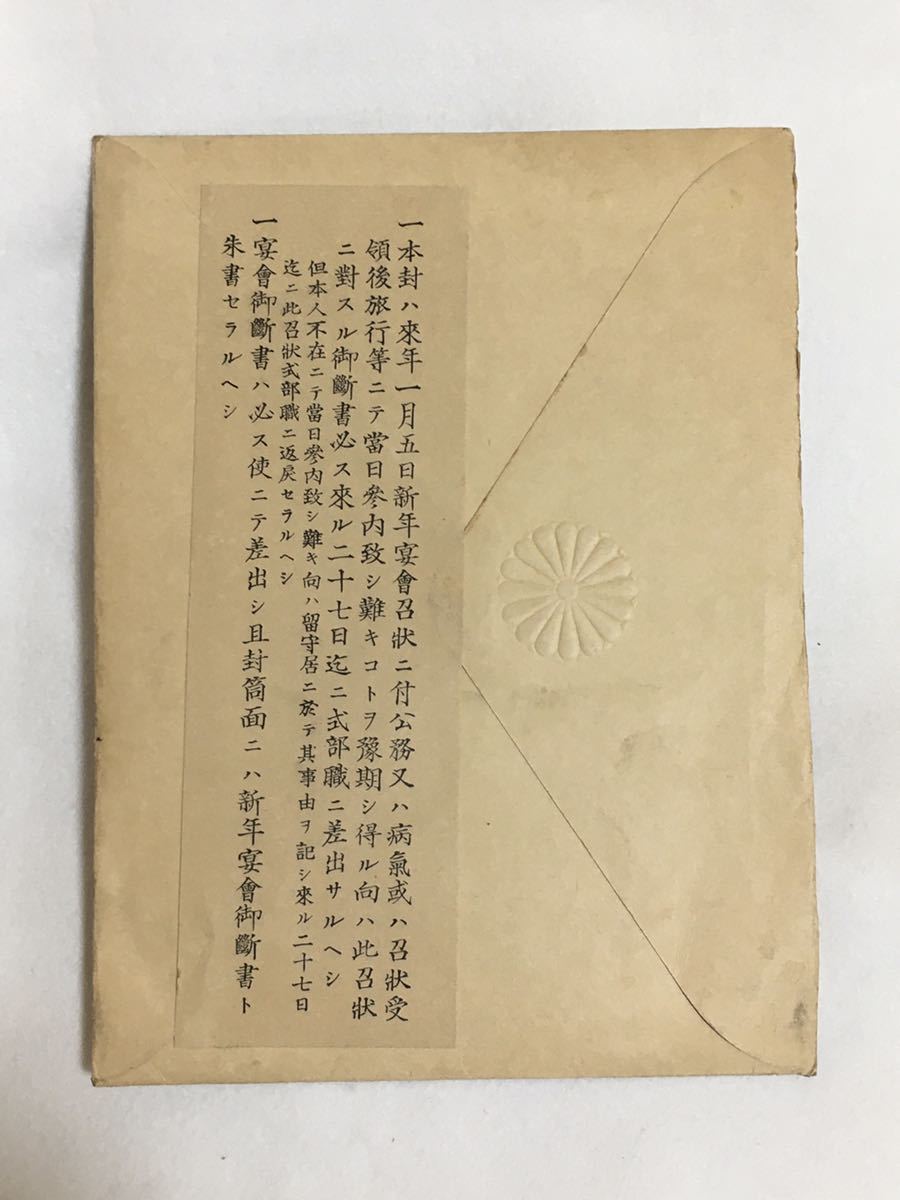 一本封ハ來年一月五日新年宴會召狀ニ付公務又ハ病氣或ハ召狀受
領後旅行等ニテ當日參內致シ難キコトヲ豫期シ得ル向ハ此召狀
ニ對スル御斷書必ス來ル二十七日迄ニ式部職ニ差出サルヘシ
但本人不在ニテ當日參內致シ難キ向ハ留守居ニ於テ其事由ヲ記シ來ル二十七日
迄ニ此召狀式部職ニ返戾セラルヘシ
一宴會御斷書ハ必ス使ニテ差出シ且封筒面ニハ新年宴會御斷書ト
朱書セラルヘシ